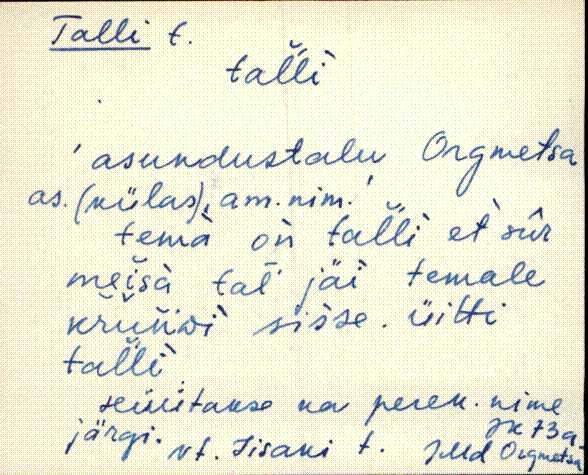 Talli t.
tal̆l̆ì
'asundustalu Orgmetsa
as. (külas), am. nim.'
temà oǹ tal̆l̆ì et̀ sûr
meĭsà tal̆ jäi temale
krŭn̆ɯì sisse. üitti
tal̆l̆ì.
Hüütakse ka peren. nime
järgi. vt. Iisaki t.
JK 73 a
JMd Orgmetsa